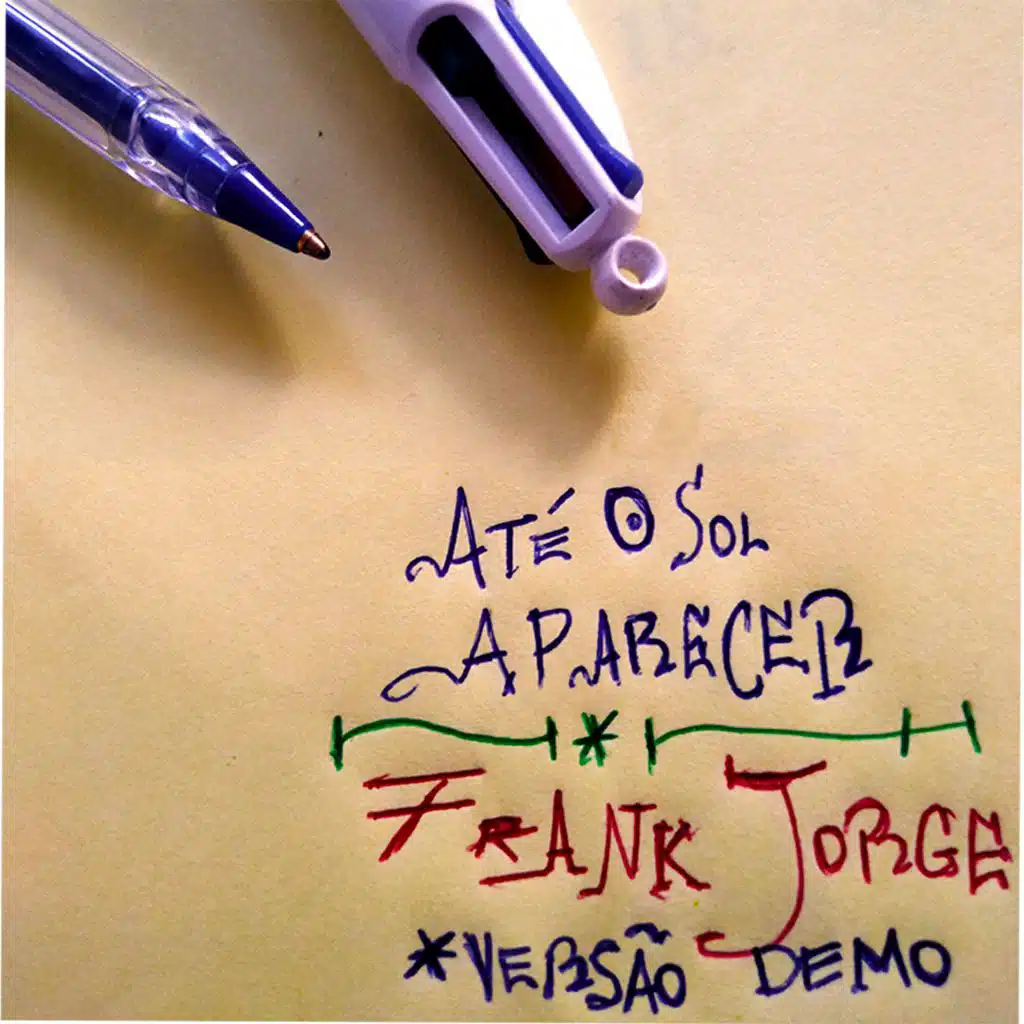 ATÉ O SOL
APARECER
*
FRANK JORGE
*VERSÃO DEMO